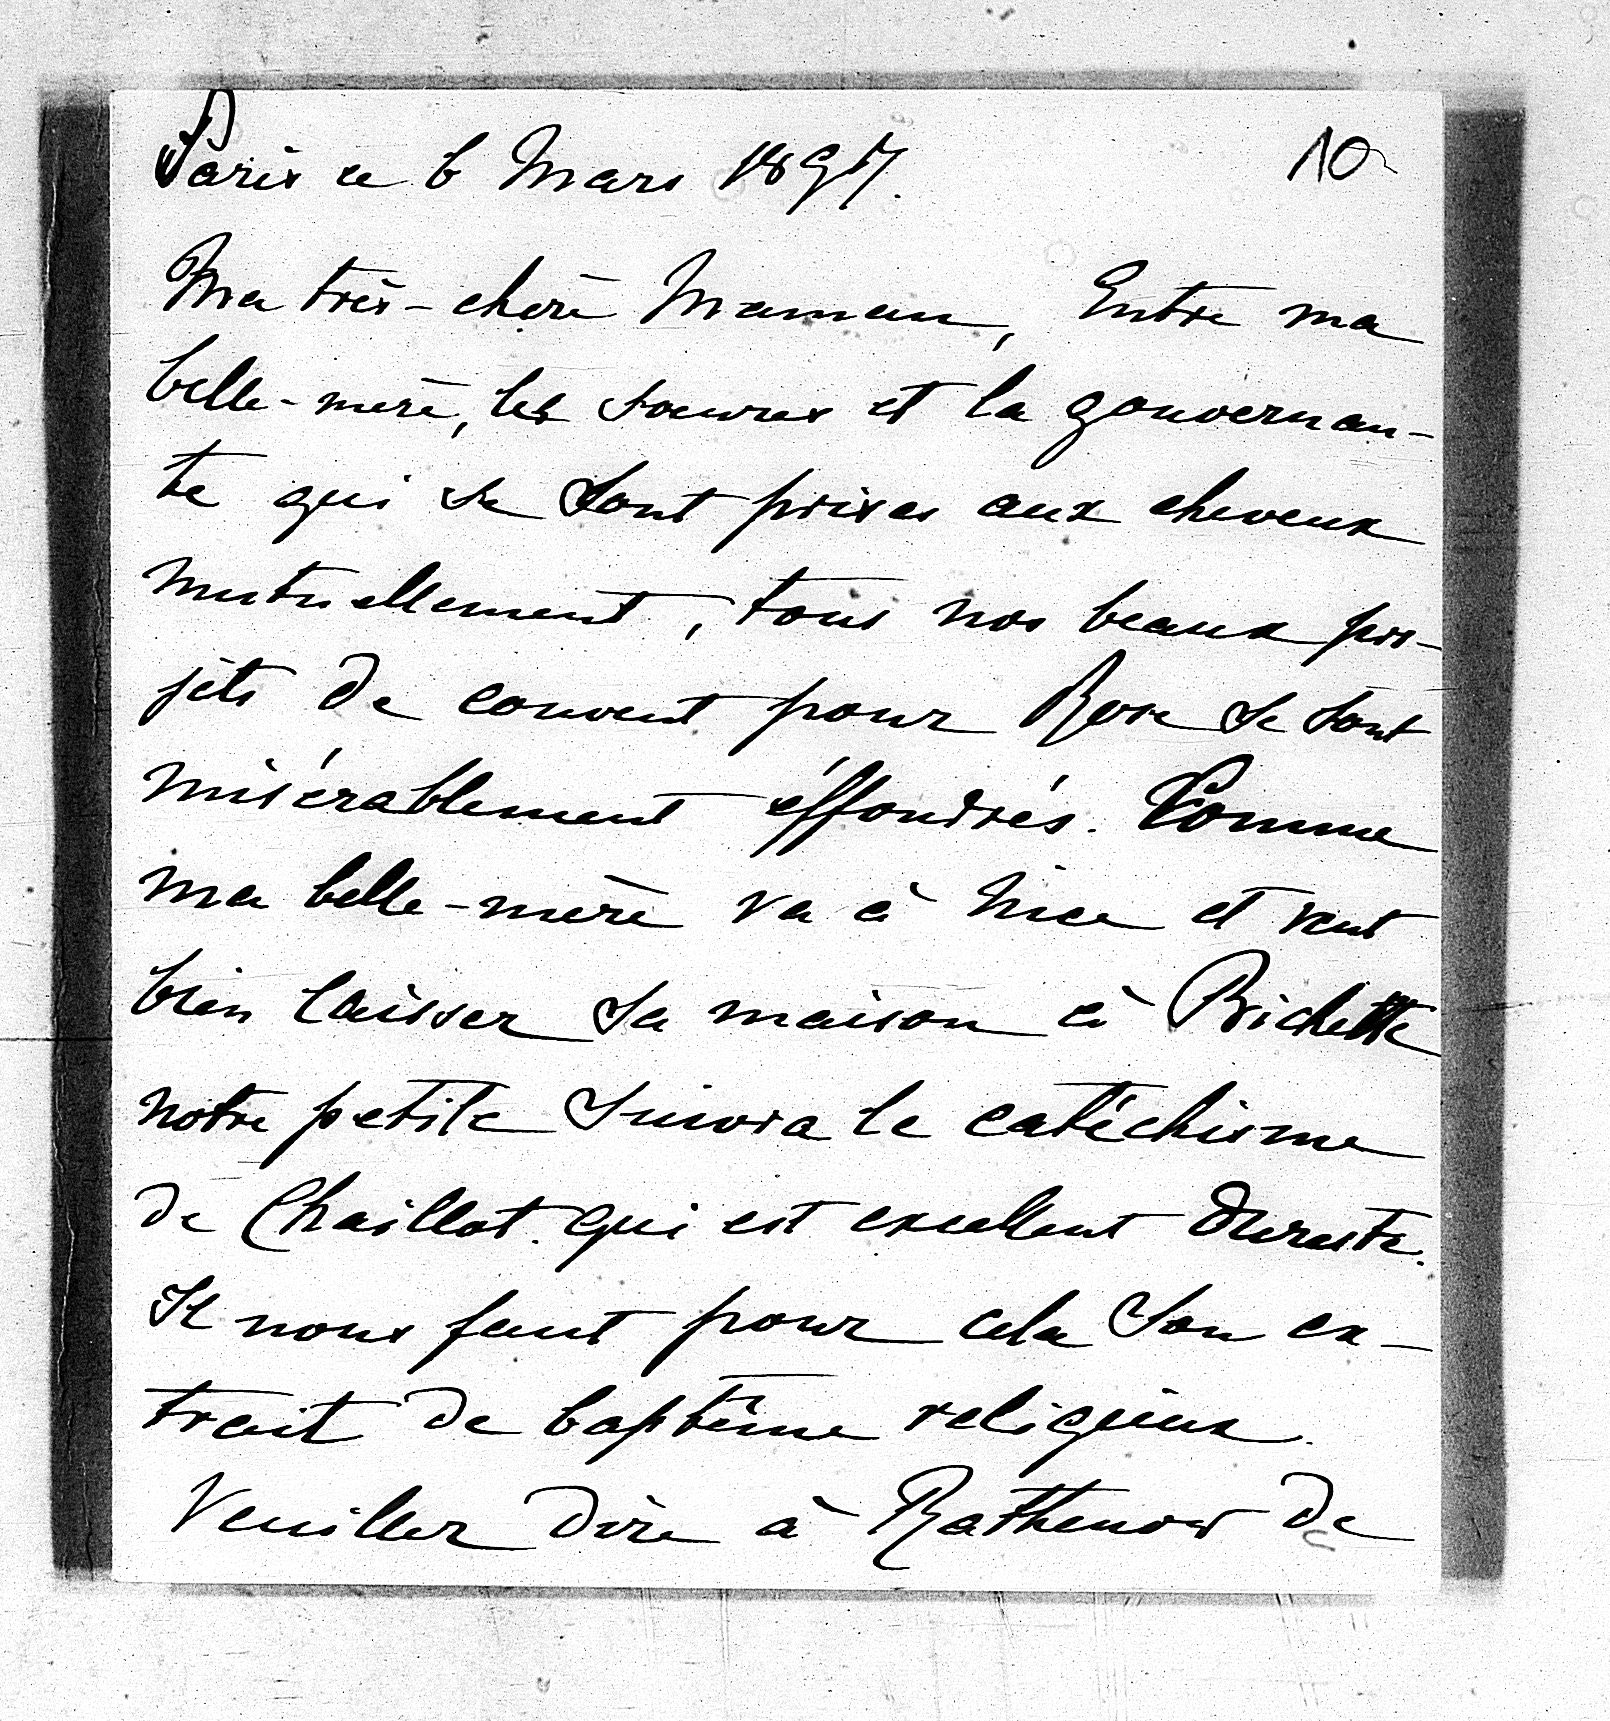 Paris ce 6 Mars 1897.
10
Ma très-chère Maman, Entre ma
belle-mère, les soeures et la gouvernan-
te qui se sont prises aux cheveux
mutuellement, tous nos beaux pro-
jets de couvent pour Rose se sont
misérablement éffondrés. Comme
ma belle-mère va à Nice et veut
bien laisser sa maison à Bichette
notre petite suivra le catéchisme
de Chaillot qui est excellent dureste.
Il nous faut pour cela son ex-
trait de baptême religieux.
Veuillez dire à Rathenow de